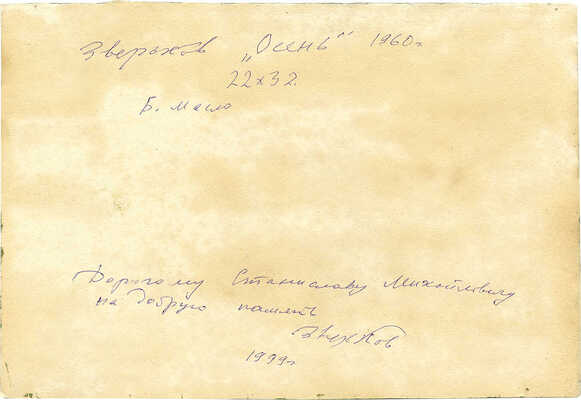 Зверьков „Осень" 1960г
22х32.
Б. Масло
Дорогому Станиславу Михайловичу
на добрую память
1999г